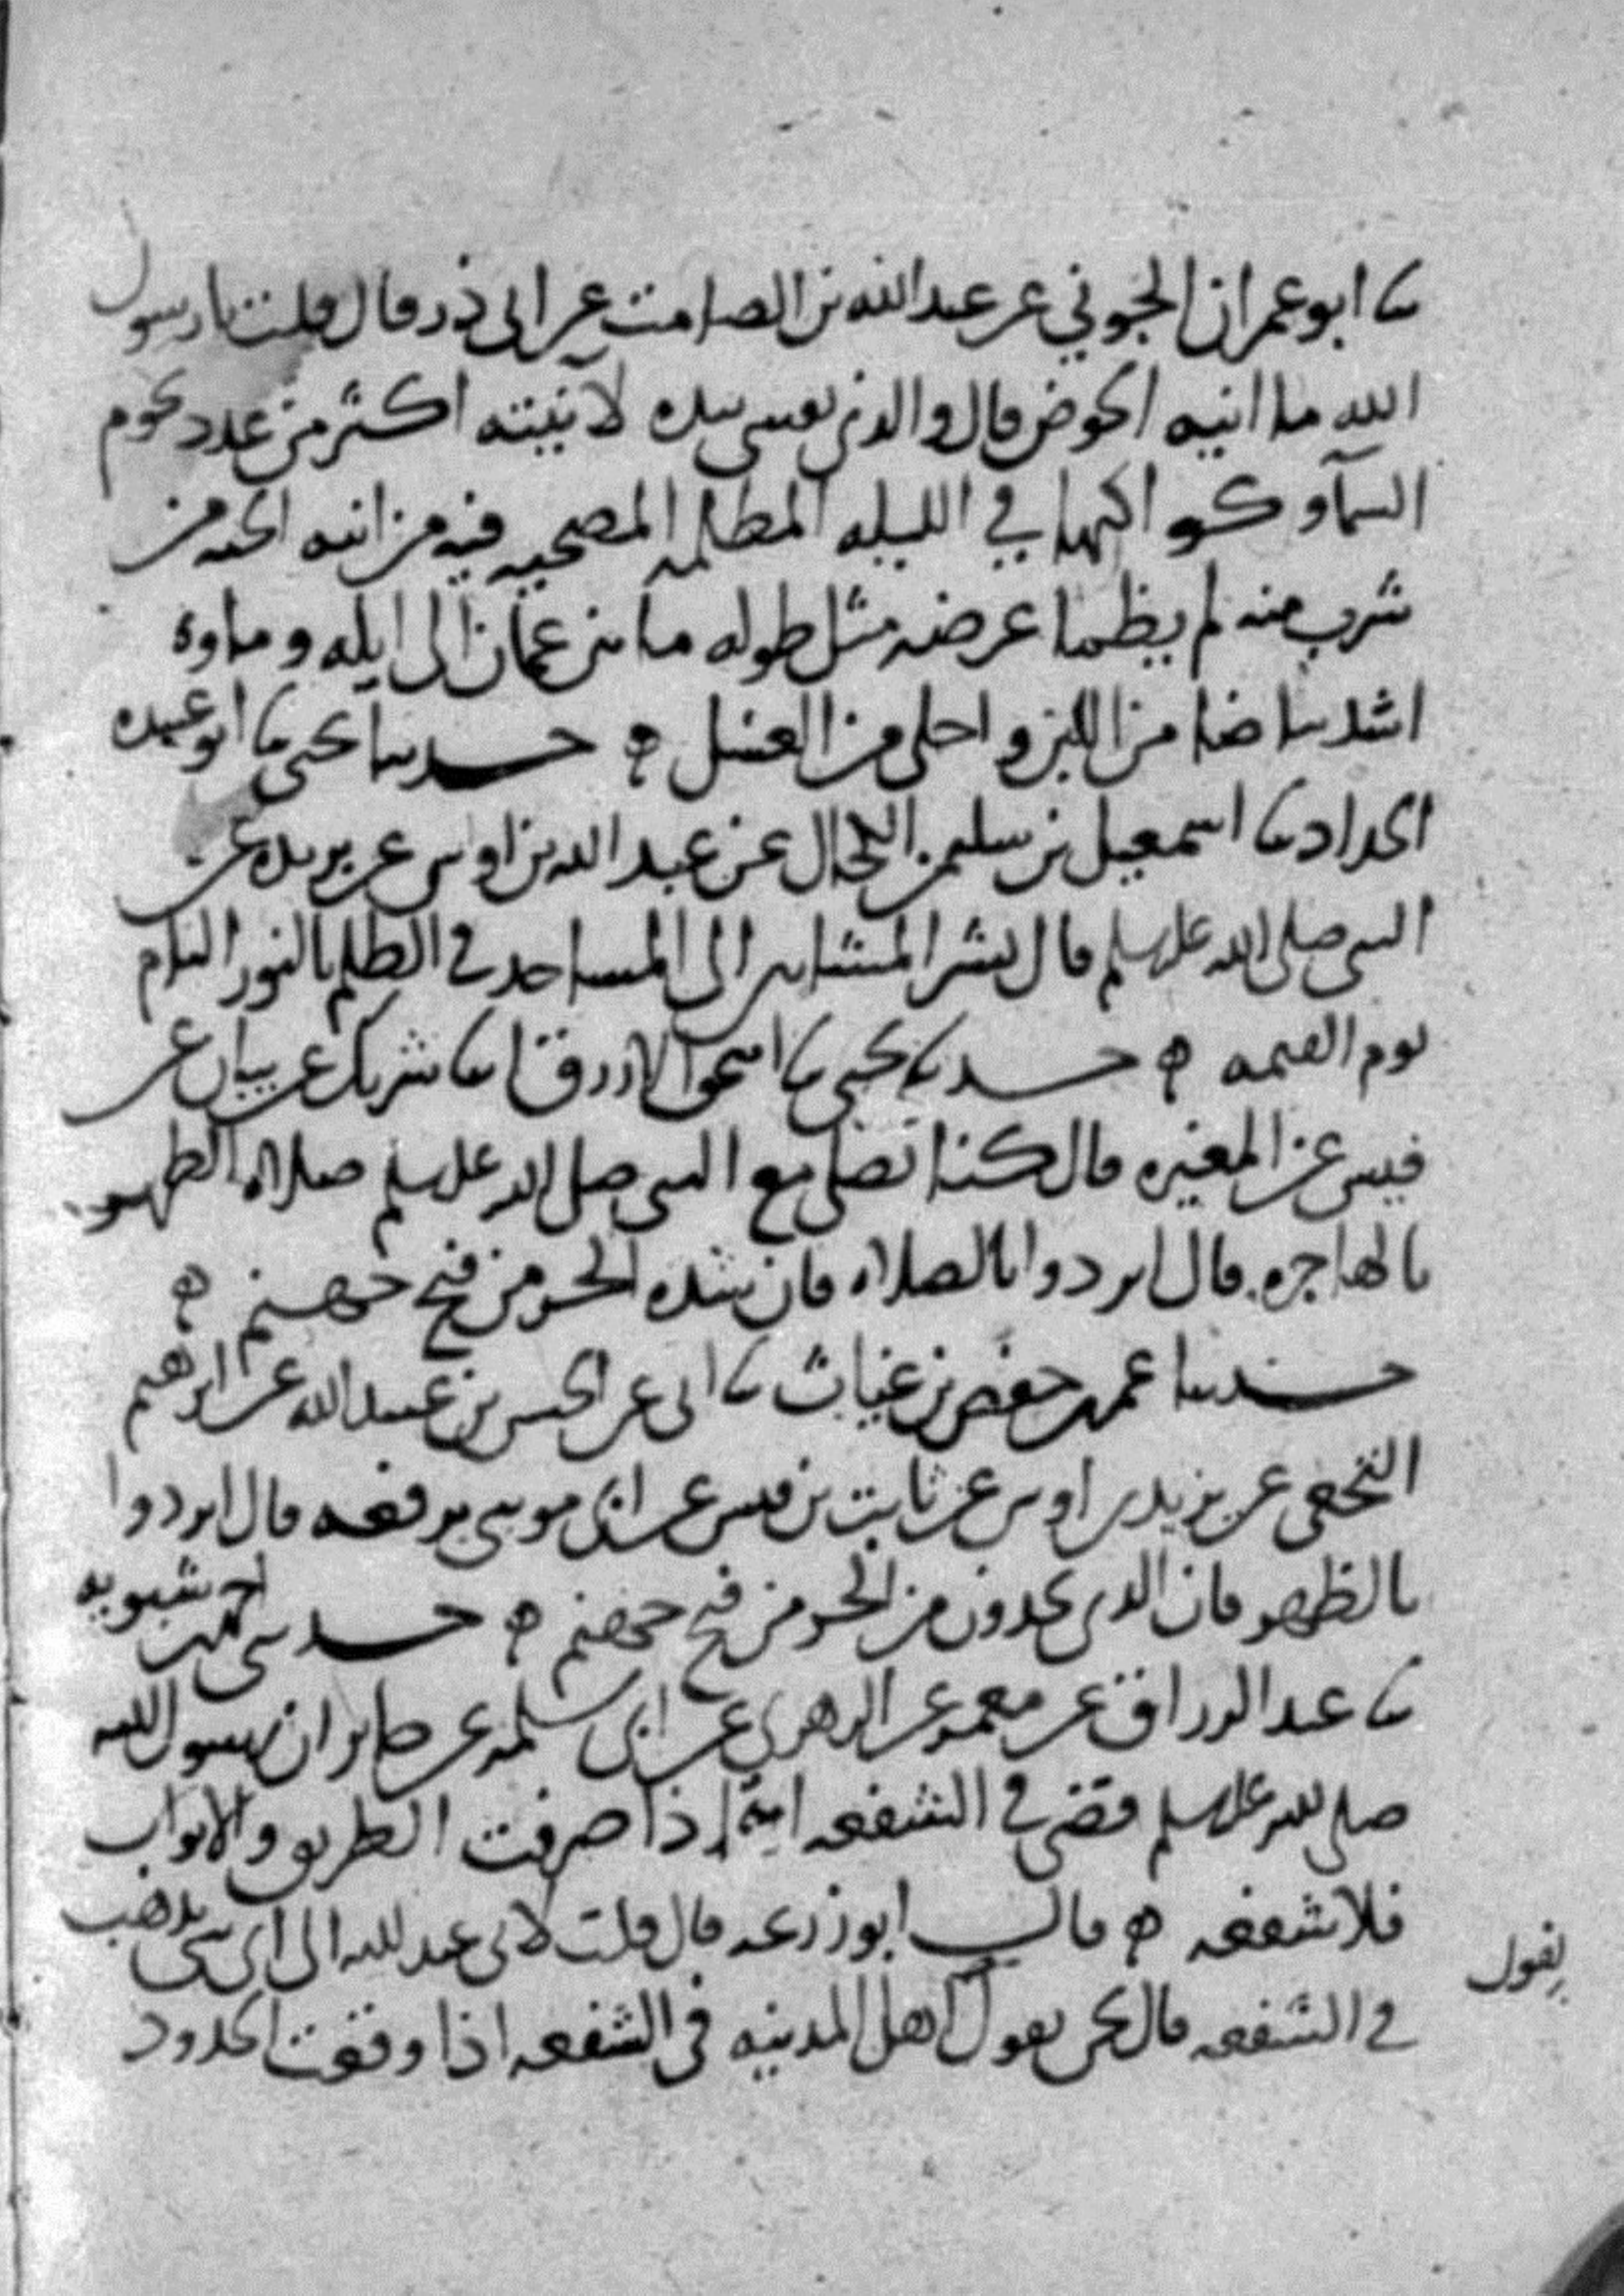 ثنا ابو عمران الجوني عن عبد الله بن الصامت عن ابي ذر قال قلت يا رسول
الله ما انيه الحوض قال والذي نفسي بيده لآنيته اكثر من عدد نجوم
السمآ وكواكبها في الليله المظلمه المصحيه فيه من انيه الجنه من
شرب منه لم يظما عرضه مثل طوله ما بين عمان الى ايله وماوه
اشد بياضا من اللبن واحلى من العسل ه حدثنا يحيى ثنا ابو عبيده
الحداد ثنا اسمعيل بن سليمن الكحال عن عبد الله بن اوس عن بريده عن
النبي صلى الله عليه وسلم قال بشر المشايين الى المساجد في الظلم بالنور التام
يوم القيمه ه حدثنا يحيى ثنا اسحق الازرق ثنا شريك عن بيان عن
قيس عن المغيره قال كنا نصلي مع النبي صلى الله عليه وسلم صلاه الظهر
بالهاجره قال ابردوا بالصلاه فان شده الحر من فيح جهنم ه
حدثنا عمر بن حفص بن غياث ثنا ابي عن الحسن بن عبيد الله عن ابراهيم
النخعي عن يزيد بن اوس عن ثابت بن قيس عن ابي موسى يرفعه قال ابردوا
بالظهر فان الذي تجدون من الحر من فيح جهنم ه حدثني احمد بن شبويه
ثنا عبد الرزاق عن معمر عن الزهري عن ابي سلمه عن جابر ان رسول الله
صلى الله عليه وسلم قضى في الشفعه انه اذا صرفت الطريق والابواب
فلا شفعه ه قال ابو زرعه قال قلت لابي عبد الله الى اي شي يذهب
في الشفعه قال نحن نقول اهل المدينه في الشفعه اذا وقعت الحدود
نقول